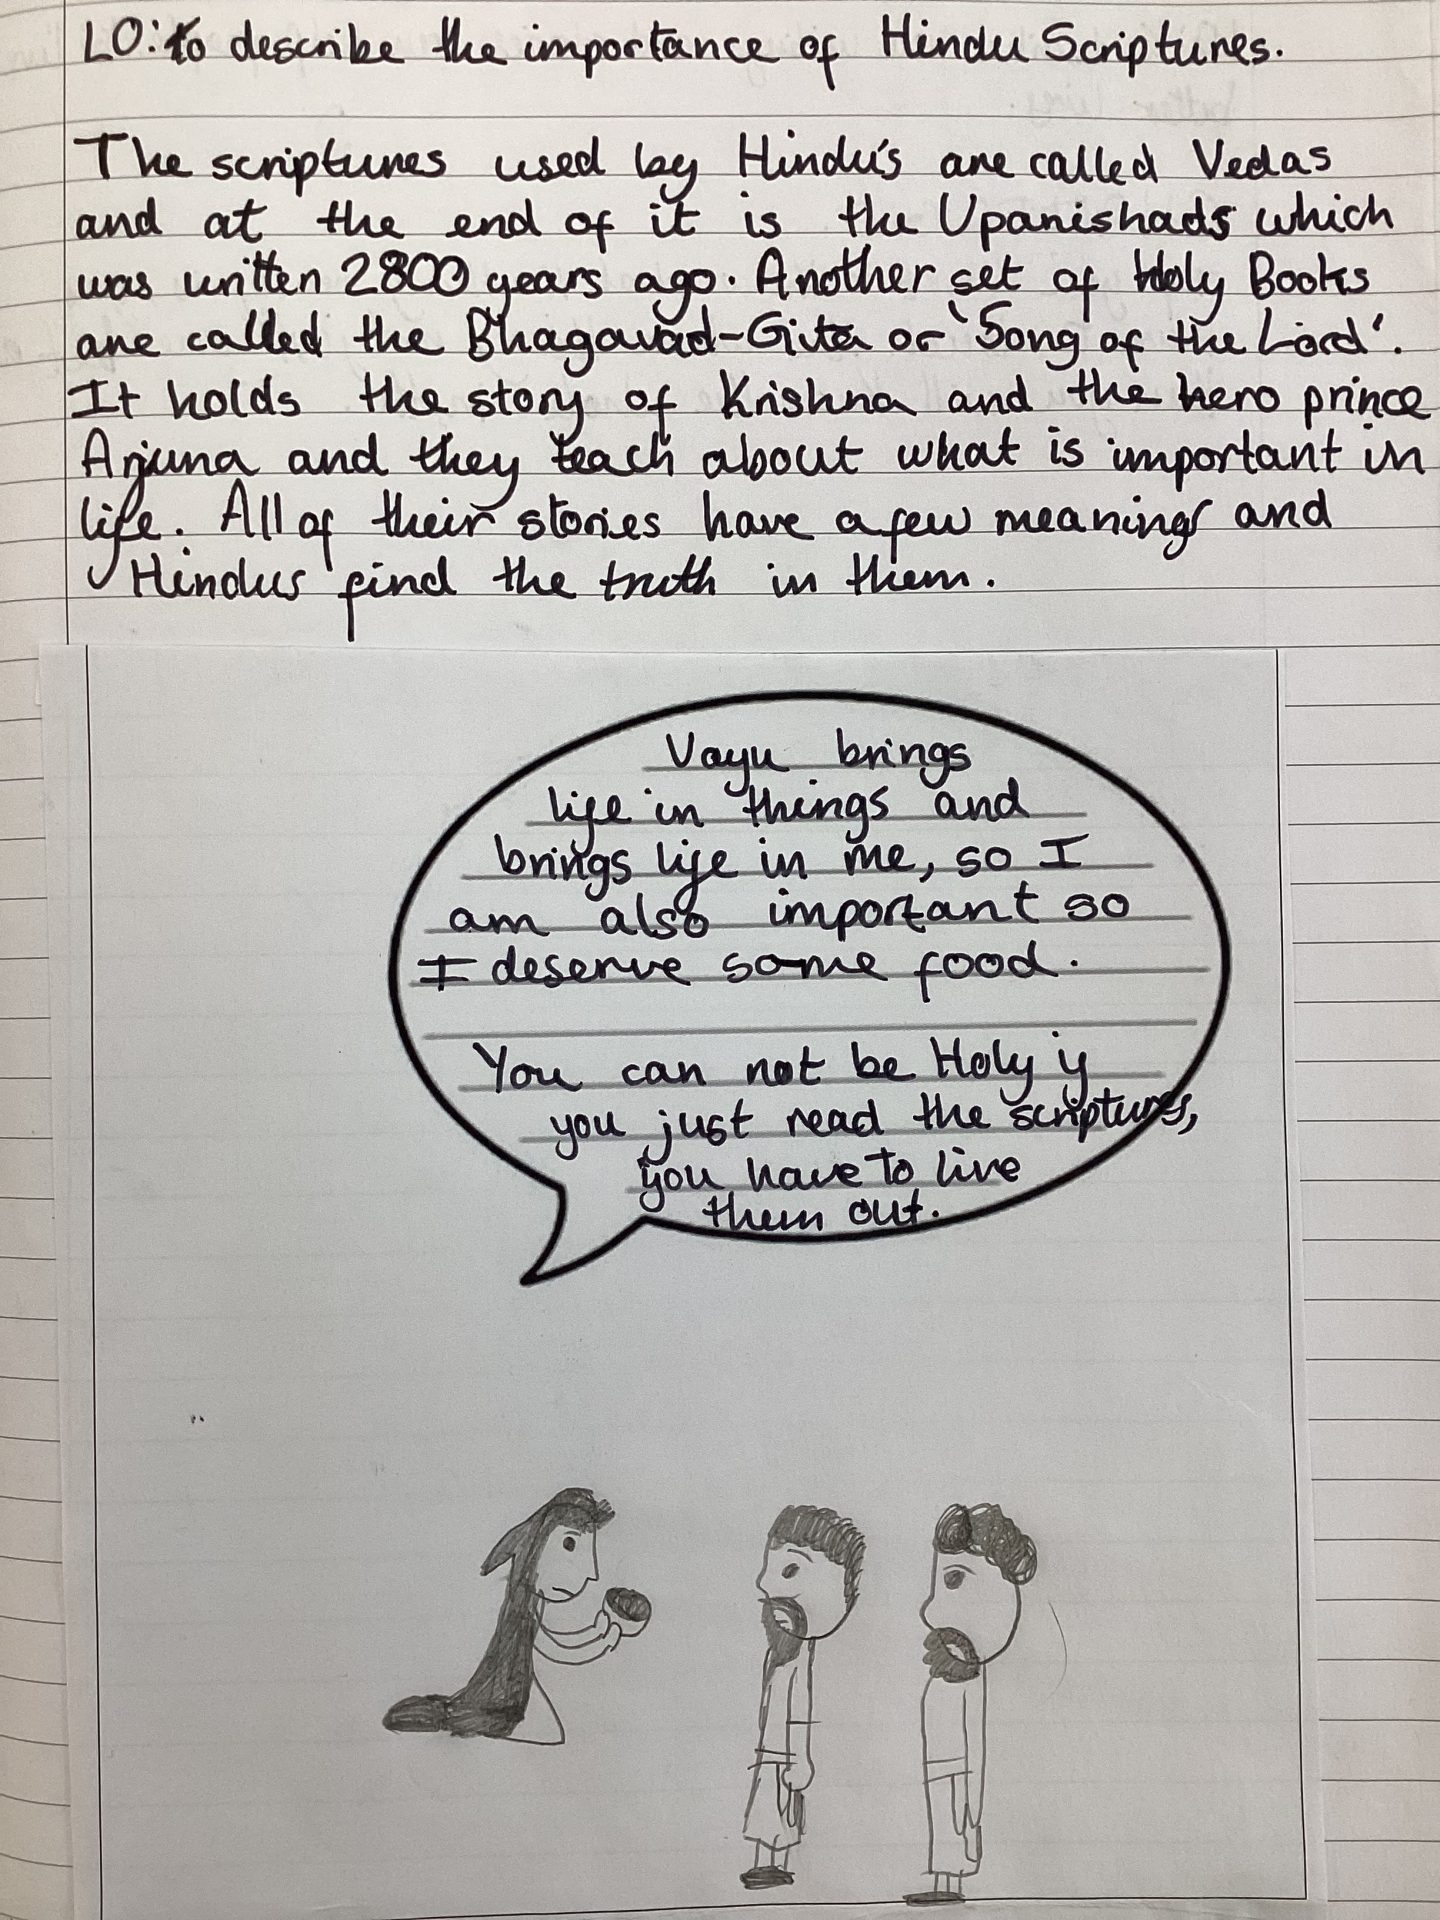 LO: to describe the importance of Hindu Scriptures.
The scriptures used by Hindu's are called Vedas
and at the end of it is the Upanishads which
was written 2800 years ago. Another set of Holy Books
are called the Bhagavad-Gita or 'Song of the Lord'.
It holds the story of Krishna and the hero prince
Arjuna and they teach about what is important in
life. All of their stories have a few meanings and
Hindus find the truth in them.
Vayu brings
life in things and
brings life in me, so I
am also important so
I deserve some food.
You can not be Holy if
you just read the scriptures,
you have to live
them out.